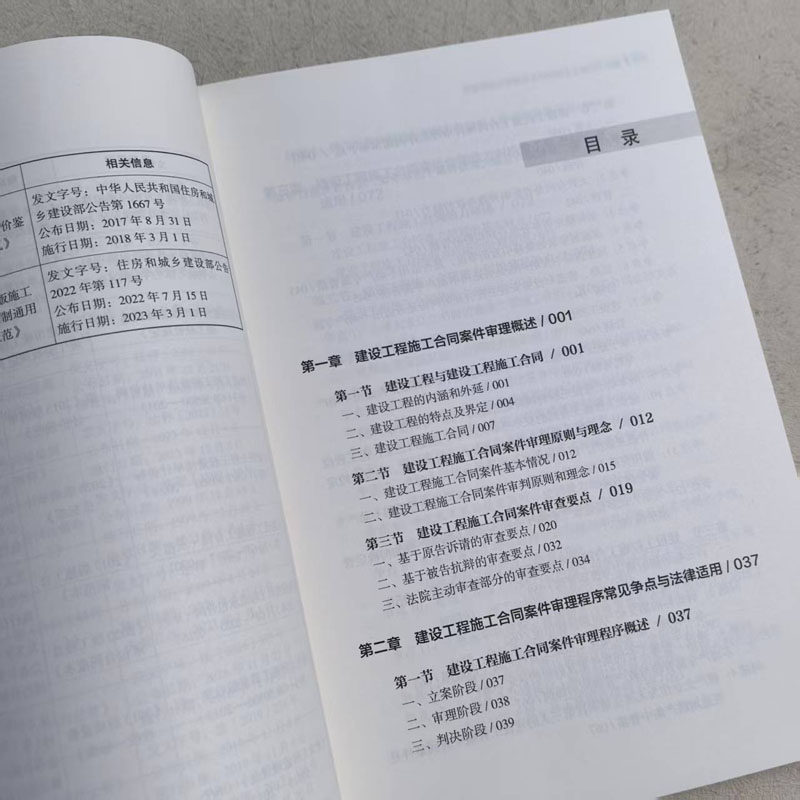 相关信息
发文字号：中华人民共和国住房和城
乡建设部公告第 1667 号
公布日期：2017 年 8 月 31 日
施行日期：2018 年 3 月 1 日
价鉴
》
发文字号：住房和城乡建设部公告
2022 年第 117 号
公布日期：2022 年 7 月 15 日
施行日期：2023 年 3 月 1 日
版施工
制通用
范》
目 录
第一章 建设工程施工合同案件审理概述 / 001
第一节 建设工程与建设工程施工合同 / 001
一、建设工程的内涵和外延 / 001
二、建设工程的特点及界定 / 004
三、建设工程施工合同 / 007
第二节 建设工程施工合同案件审理原则与理念 / 012
一、建设工程施工合同案件基本情况 / 012
二、建设工程施工合同案件审判原则和理念 / 015
第三节 建设工程施工合同案件审查要点 / 019
一、基于原告诉请的审查要点 / 020
二、基于被告抗辩的审查要点 / 032
三、法院主动审查部分的审查要点 / 034
第二章 建设工程施工合同案件审理程序常见争点与法律适用 / 037
第一节 建设工程施工合同案件审理程序概述 / 037
一、立案阶段 / 037
二、审理阶段 / 038
三、判决阶段 / 039